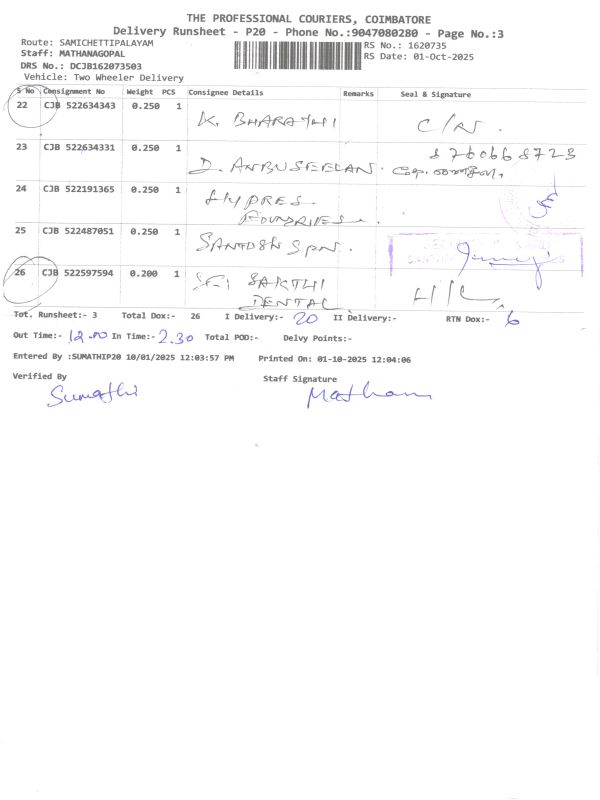 THE PROFESSIONAL COURIERS, COIMBATORE
Delivery Runsheet - P20 - Phone No.:9047080280 - Page No.:3
Route: SAMICHETTIPALAYAM
RS No.: 1620735
Staff: MATHANAGOPAL
RS Date: 01-Oct-2025
DRS No.: DCJB162073503
Vehicle: Two Wheeler Delivery
S No Consignment No Weight PCS Consignee Details Remarks Seal & Signature
22 CJB 522634343 0.250 1 K. BHARATHI C/N.
23 CJB 522634331 0.250 1 D. ANBUSEELAN. 8760668723
24 CJB 522191365 0.250 1 HYPRES
FOUNDRIES
25 CJB 522487051 0.250 1 SANTOSH SPN.
26 CJB 522597594 0.200 1 Sri SAKTHI
DENTAL
Tot. Runsheet:- 3 Total Dox:- 26 I Delivery:- 20 II Delivery:- RTN Dox:- 6
Out Time:- 12.00 In Time:- 2.30 Total POD:- Delvy Points:-
Entered By :SUMATHIP20 10/01/2025 12:03:57 PM Printed On: 01-10-2025 12:04:06
Verified By Staff Signature
Sumathi Mathan